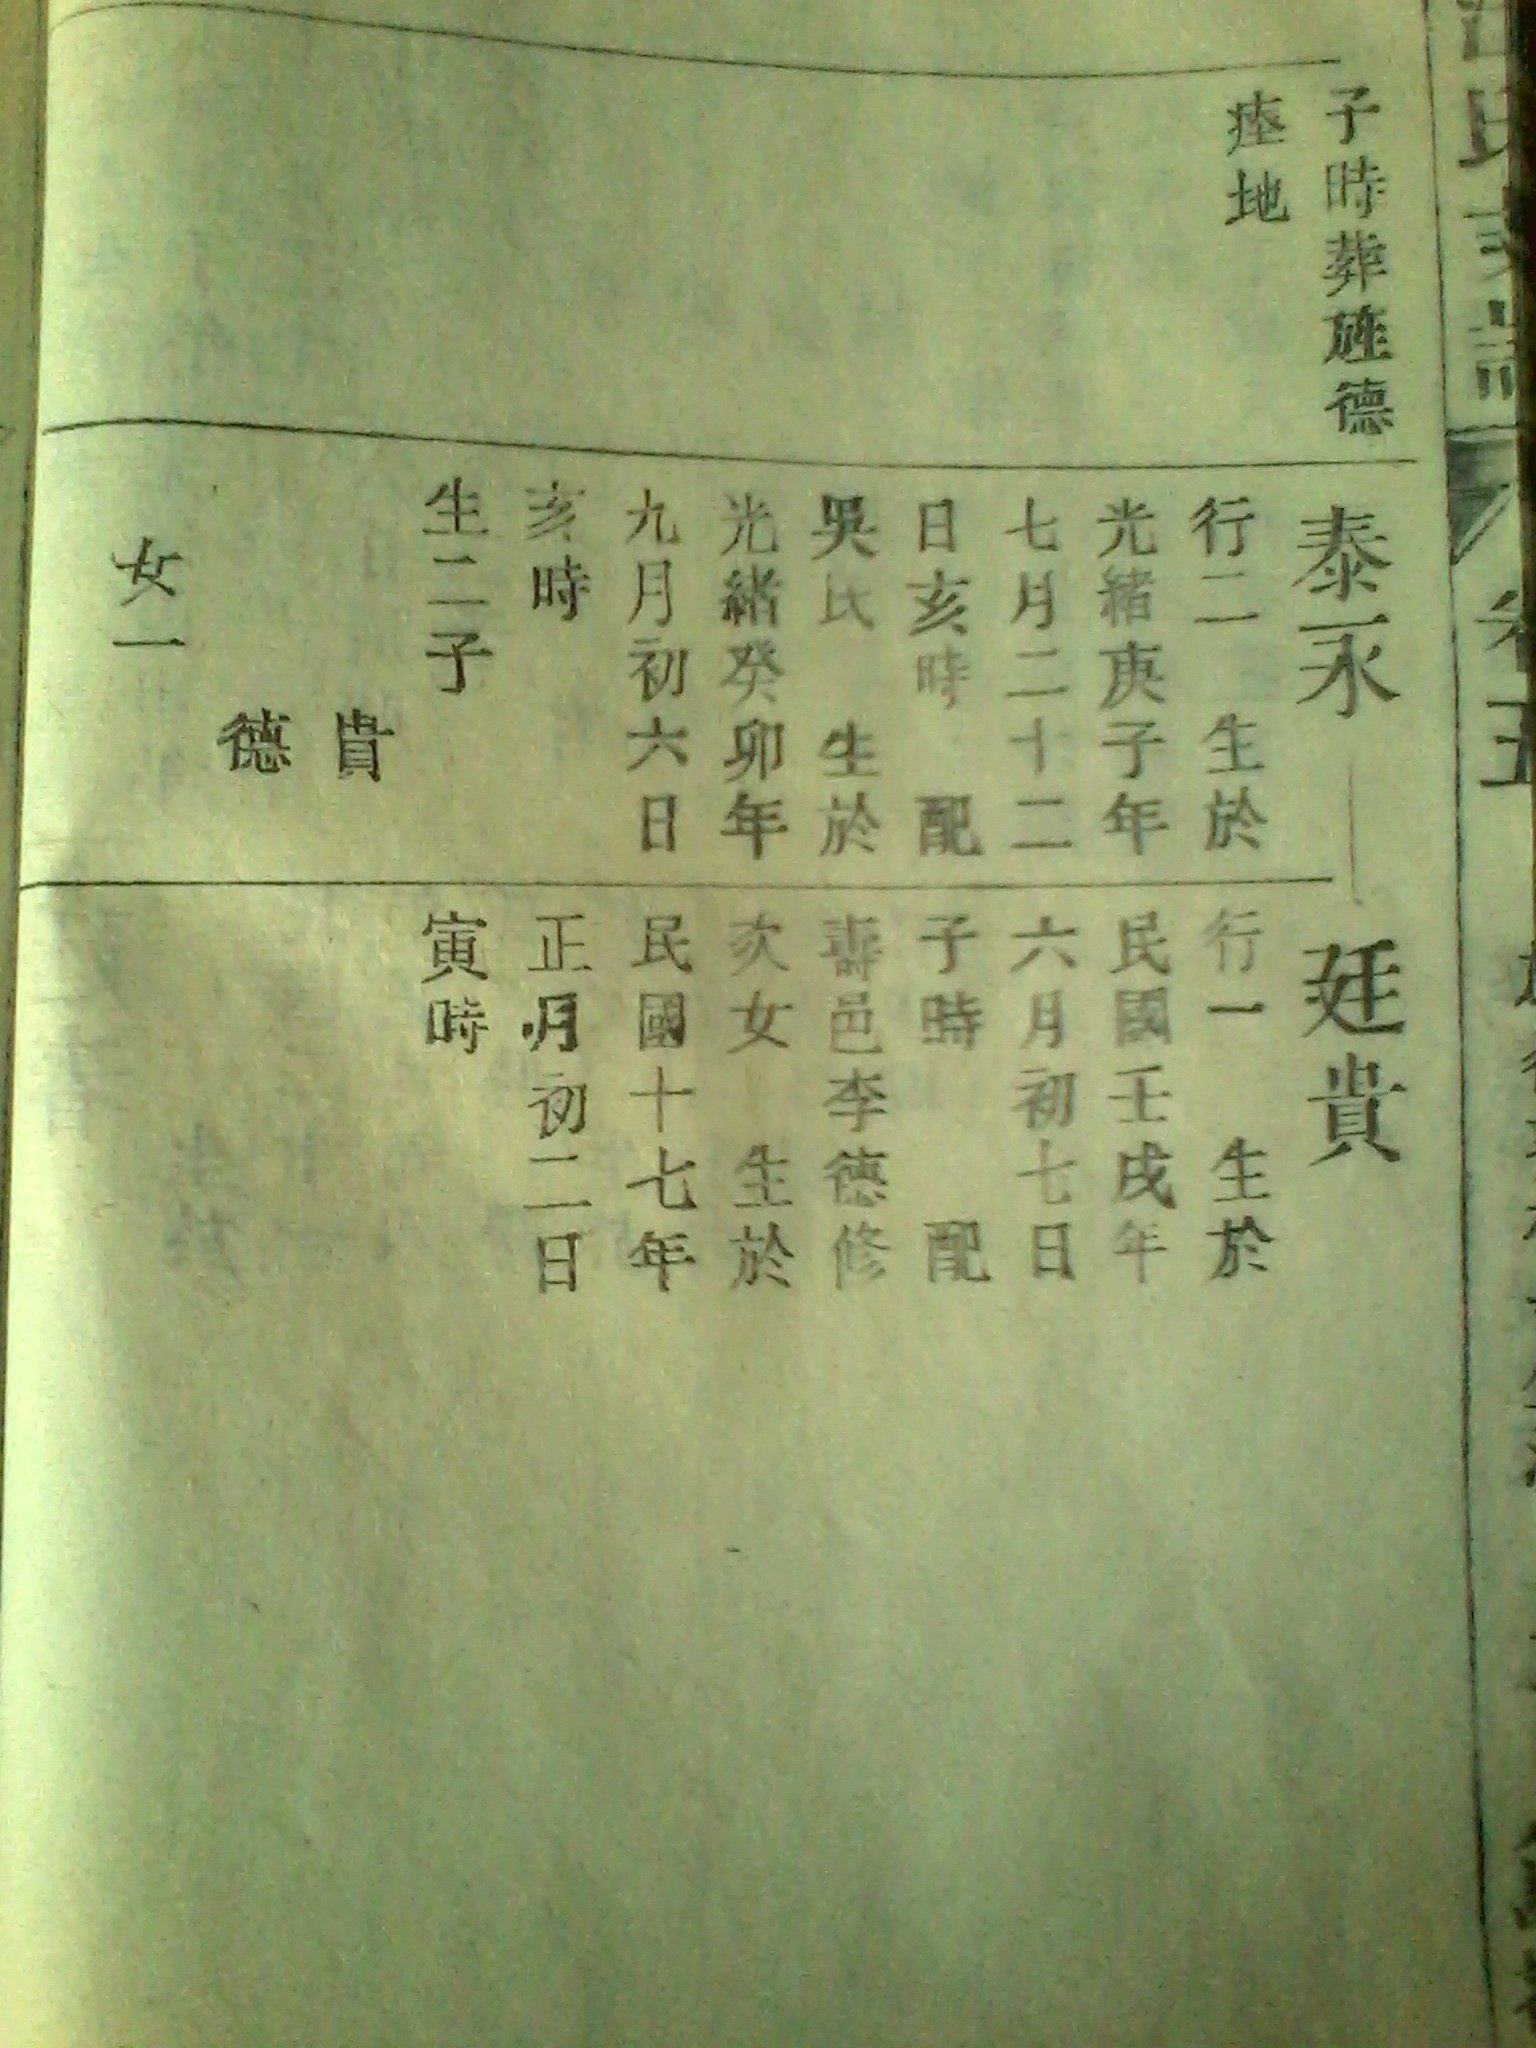 子時葬旌德
瘞地
泰永
行二 生於
光緒庚子年
七月二十二
日亥時 配
吳氏 生於
光緒癸卯年
九月初六日
亥時
生二子
貴
德
女一
廷貴
行一 生於
民國壬戌年
六月初七日
子時 配
壽邑李德修
次女 生於
民國十七年
正月初二日
寅時